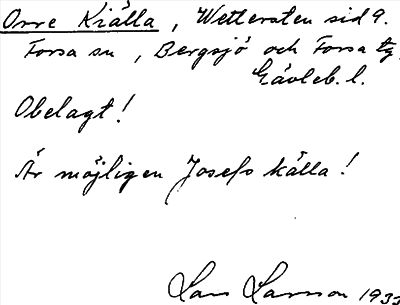 Orre Kiälla, Wettersten sid 9.
Forsa sn, Bergsjö och Forsa tg,
Gävleb. l.
Obelagt!
Är möjligen Josefs källa!
Lars Larsson 193